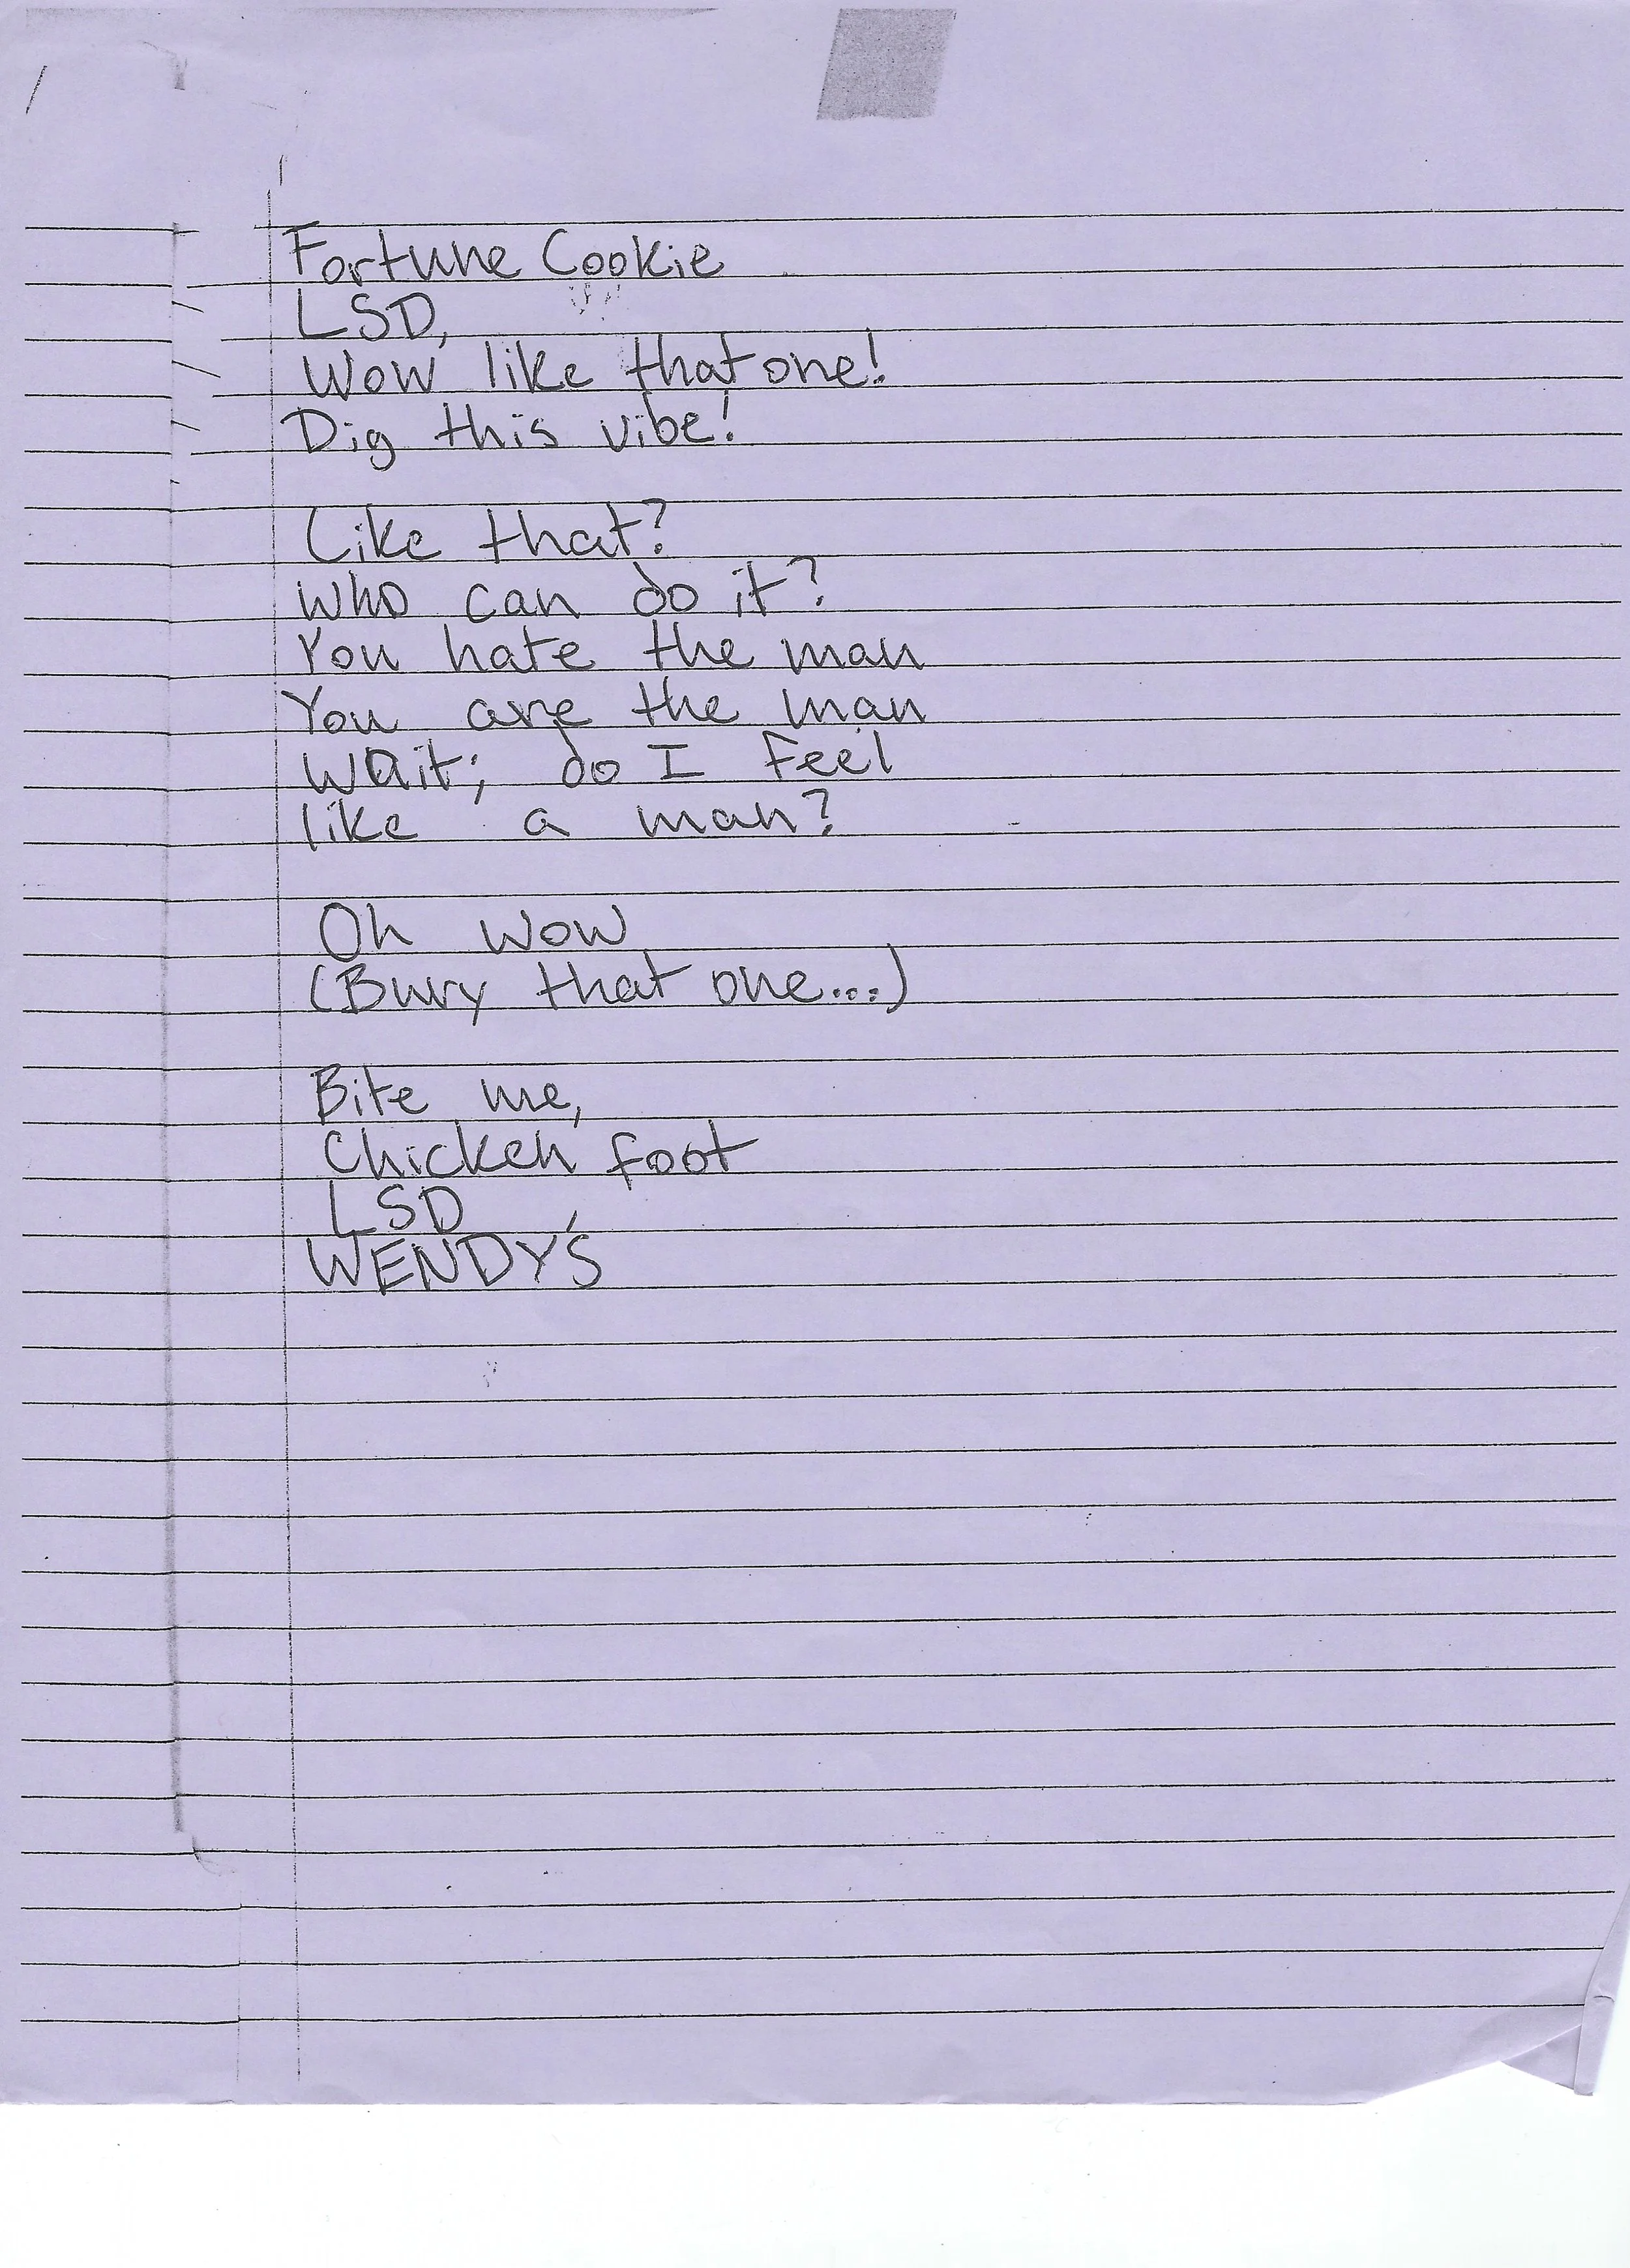 Fortune Cookie
LSD,
Wow like that one!
Dig this vibe!
Like that?
Who can do it?
You hate the man
You are the man
Wait; do I feel
like a man?
Oh wow
(Bury that one...)
Bite me,
Chicken foot
LSD
WENDY'S